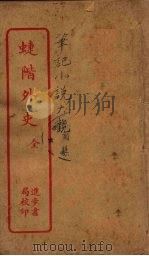 筆記小説大觀
蜨階外史
全
進步書
局校印